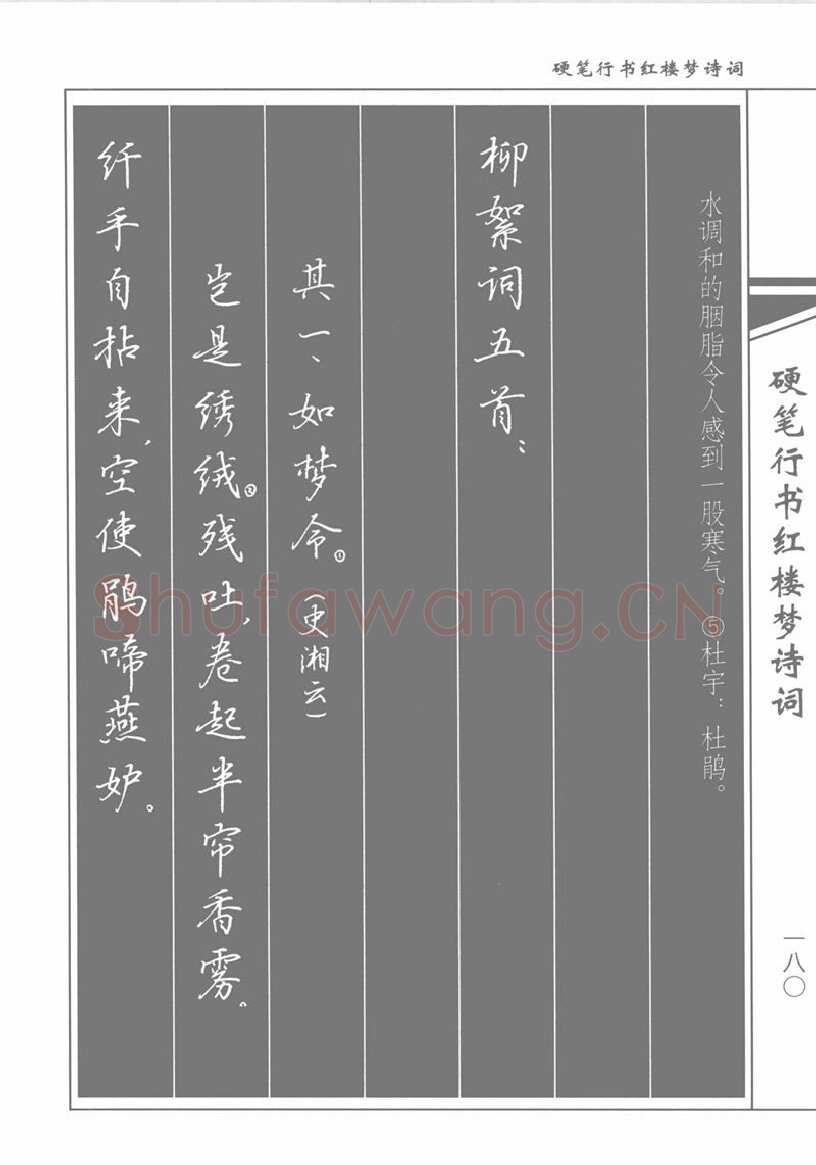 硬笔行书红楼梦诗词
水调和的胭脂令人感到一股寒气。⑤杜宇：杜鹃。
柳絮词五首：
其一、如梦令。①（史湘云）
岂是绣绒②残吐，卷起半帘香雾。
纤手自拈来，空使鹃啼燕妒。
硬笔行书红楼梦诗词
一八〇
Shufawang.CN